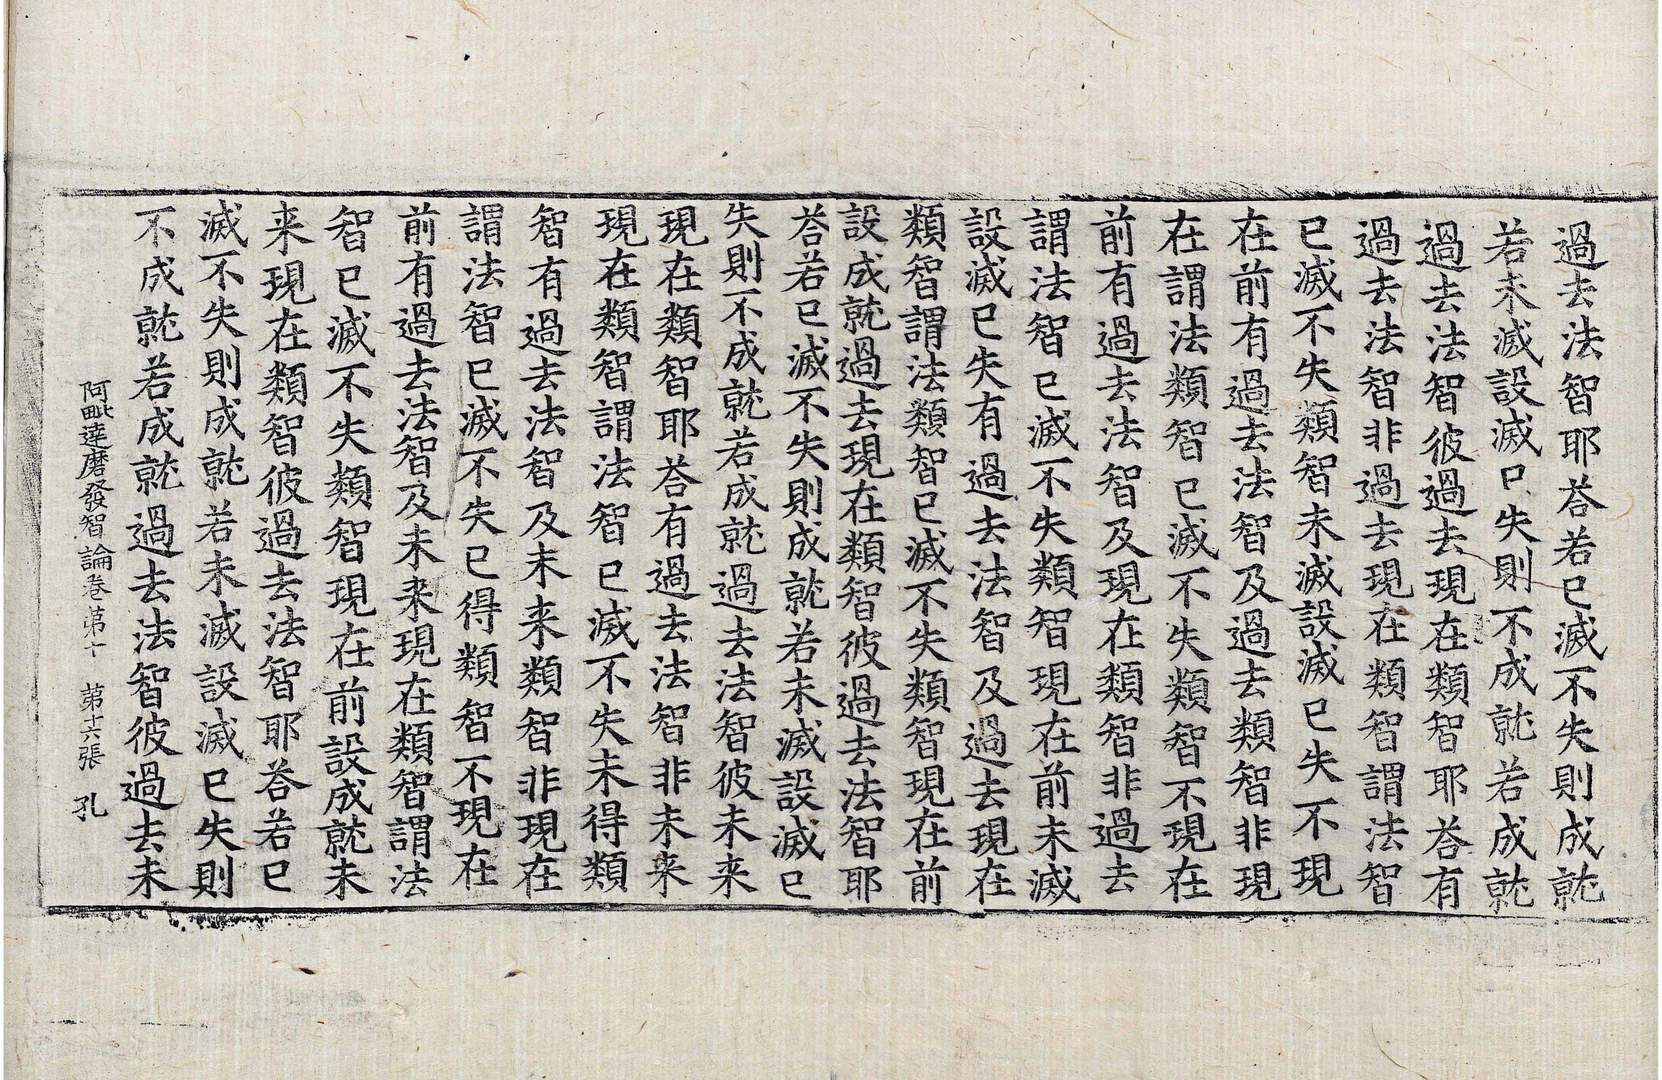 過去法智耶荅若已滅不失則成就
若未滅設滅已失則不成就若成就
過去法智彼過去現在類智耶荅有
過去法智非過去現在類智謂法智
已滅不失類智未滅設滅已失不現
在前有過去法智及過去類智非現
在謂法類智已滅不失類智不現在
前有過去法智及現在類智非過去
謂法智已滅不失類智現在前未滅
設滅已失有過去法智及過去現在
類智謂法類智已滅不失類智現在前
設成就過去現在類智彼過去法智耶
荅若已滅不失則成就若未滅設滅已
失則不成就若成就過去法智彼未来
現在類智耶荅有過去法智非未来
現在類智謂法智已滅不失未得類
智有過去法智及未来類智非現在
謂法智已滅不失已得類智不現在
前有過去法智及未来現在類智謂法
智已滅不失類智現在前設成就未
来現在類智彼過去法智耶荅若已
滅不失則成就若未滅設滅已失則
不成就若成就過去法智彼過去未
阿毗達磨發智論卷第十　第十六張　孔